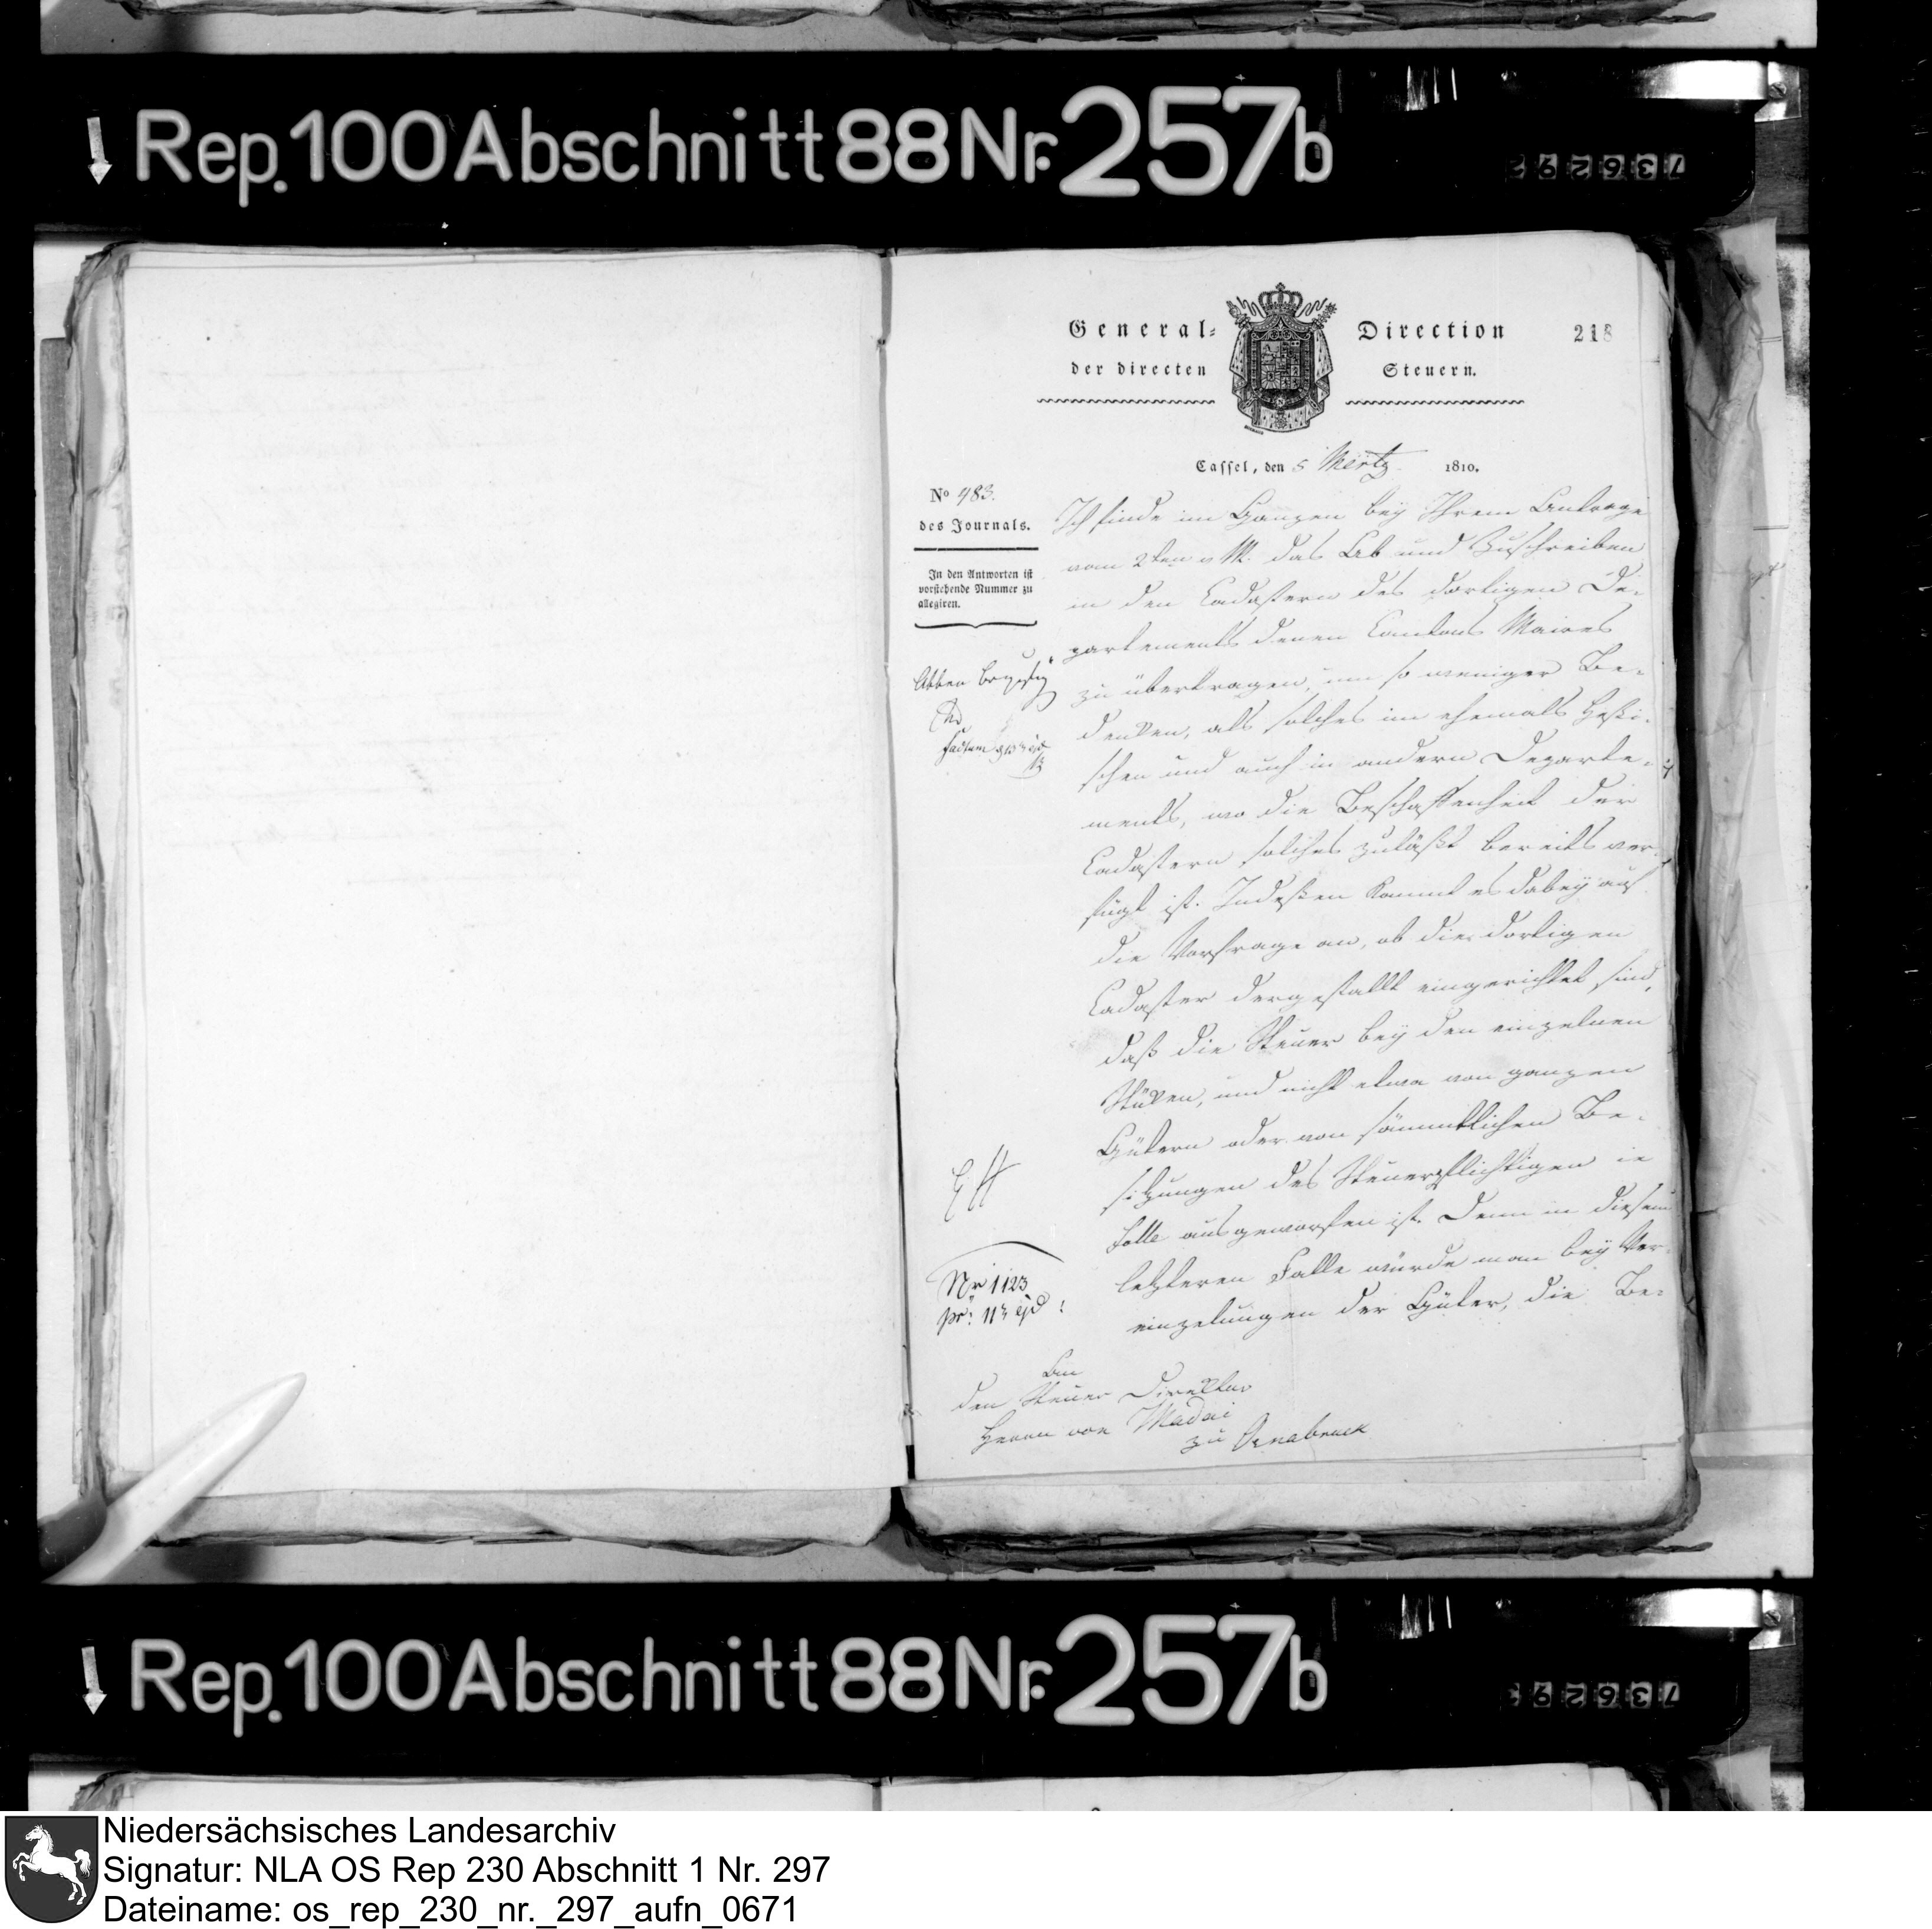 Rep. 100 Abschnitt 88 Nr. 257b
736292
General= Direction
218
der directen Steuern.
Cassel, den 5 Mertz 1810.
No 483.
des Journals.
In den Antworten ist
vorstehende Nummer zu
allegiren.
Ich finde im Ganzen bey Ihrem Antrage
vom 2ten v. M. das Ab und Zuschreiben
in den Cadastern des dortigen De-
partements denen Cantons Maires
zu übertragen, um so weniger Be-
denken, als solches im ehemals Heßi-
schen und auch in andern Departe-
ments, wo die Beschaffenheit der
Cadastern solches zuläßt bereits ver-
fügt ist. Indeßen kommt es dabey auf
die Vorfrage an, ob die dortigen
Cadaster dergestallt eingerichtet sind,
daß die Steuer bey den einzelnen
Stüken, und nicht etwa von ganzen
Gütern oder von sämmtlichen Be-
sitzungen des Steuerpflichtigen in
ausgeworfen ist. Denn in diesem
letzteren Falle würde man bey Ver-
einzelungen der Güter, die Be-
Nr 1123
pr: 11 ejd:
An
den Steuer Direktor
Herrn von Madai
zu Osnabrueck
Rep. 100 Abschnitt 88 Nr. 257b
736293
Niedersächsisches Landesarchiv
Signatur: NLA OS Rep 230 Abschnitt 1 Nr. 297
Dateiname: os_rep_230_nr._297_aufn_0671